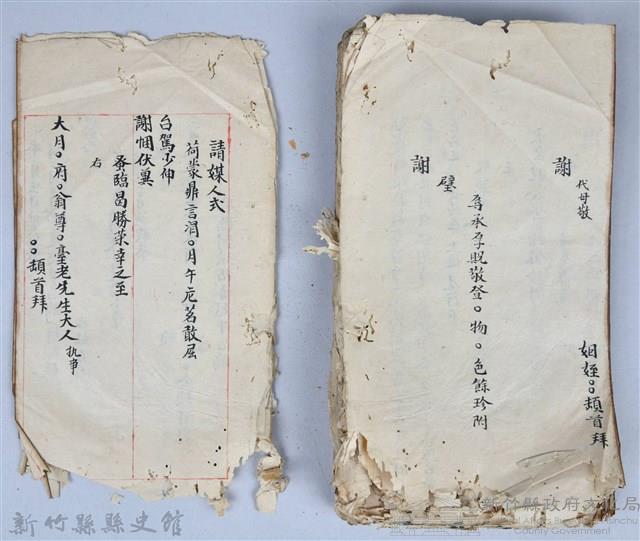 代母敬 姻姪○○頓首拜
謝
辱承孚貺敬登○物○色餘珍附
璧
謝
請媒人式
荷蒙鼎言涓○月午卮茗敢屈
台駕少伸
謝悃伏冀
賁臨曷勝榮幸之至
右
大月○府○翁尊○臺老先生大人 執事
○○頓首拜
新竹縣縣史館
新竹縣政府文化局
Cultural Affairs Bureau, Hsinchu
County Government